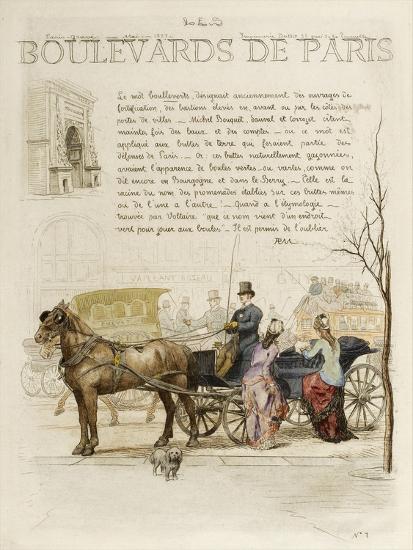 LES
Paris-gravé Mai 1877 Imprimerie
BOULEVARDS DE PARIS
Le mot boulleverts, désignait anciennement des ouvrages de
fortification, des bastions élevés en avant ou sur les côtés des
portes de villes — Michel Bouquet, Sauval et Corrozet citent
maintes fois des baux et des comptes — où ce mot est
appliqué aux buttes de terre qui faisaient partie des
défenses de Paris. — Or ces buttes naturellement gazonnées,
avaient l'apparence de boules vertes ou vartes, comme on
dit encore en Bourgogne et dans le Berry — Celle est la
racine du nom des promenades établies sur ces buttes mêmes
ou de l'une à l'autre! — Quand à l'étymologie —
trouvée par Voltaire "que ce nom vient d'un endroit
vert pour jouer aux boules" — Il est permis de l'oublier
VAILLANT
N° 7